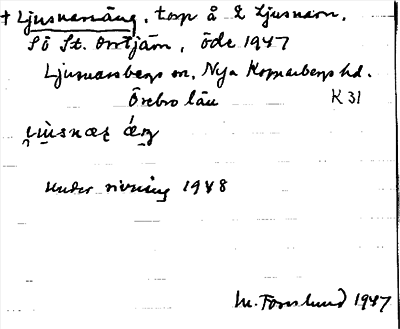 † Ljusnarsäng, torp å L Ljusnarn,
SÖ St. Orrtjärn, öde 1947
Ljusnarsbergs sn, Nya Kopparbergs hd.
Örebro län K 31
Under rivning 1948
M. Forslund 1947